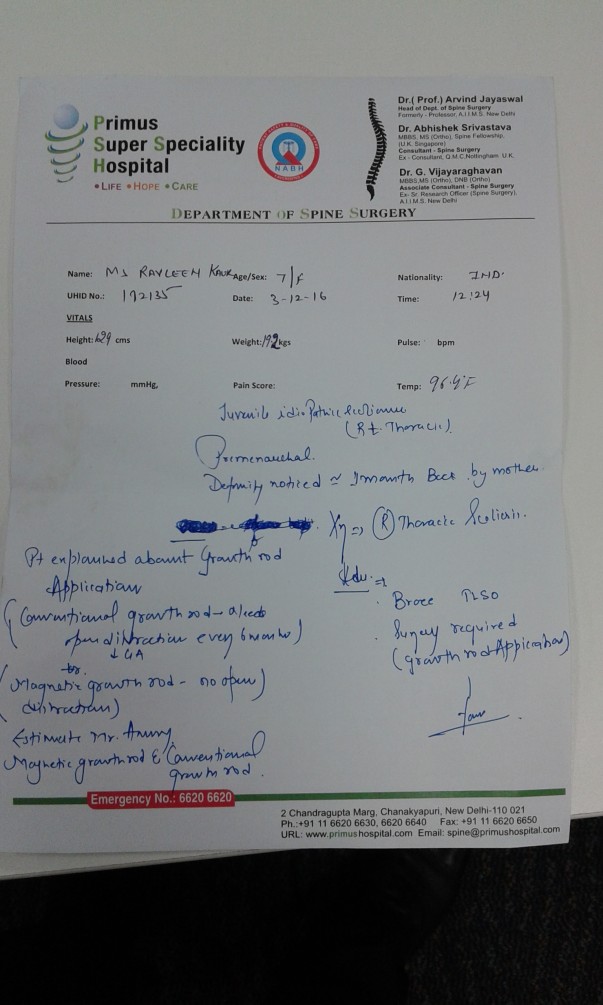 Primus
Super Speciality
Hospital
• LIFE • HOPE • CARE
NABH
Dr.( Prof.) Arvind Jayaswal
Head of Dept. of Spine Surgery
Formerly - Professor, A.I.I.M.S. New Delhi
Dr. Abhishek Srivastava
MBBS, MS (Ortho), Spine Fellowship,
(U.K. Singapore)
Consultant - Spine Surgery
Ex - Consultant, Q.M.C,Nottingham. U.K.
Dr. G. Vijayaraghavan
MBBS,MS (Ortho), DNB (Ortho)
Associate Consultant - Spine Surgery
Ex- Sr. Research Officer (Spine Surgery),
A.I.I.M.S. New Delhi
DEPARTMENT OF SPINE SURGERY
Name: MS RAVLEEN KAUR Age/Sex: 7/F Nationality: IND.
UHID No.: 172135 Date: 3-12-16 Time: 12:24
VITALS
Height: 129 cms Weight: kgs Pulse: bpm
Blood
Pressure: mmHg, Pain Score: Temp: 96.4°F
Juvenile idiopathic Scoliosis
(Rt. Thoracic)
Premenarchal.
Deformity noticed ≈ 1 month Back by mother.
Xry => (R) Thoracic Scoliosis.
Pt explained about Growth rod
Application
(Conventional growth rod - needs
open distraction every 6 months)
↓ GA
or
(Magnetic growth rod - no open)
distraction)
Estimate Mr.
Magnetic growth rod & Conventional
growth rod.
Adv. =>
. Brace TLSO
. Surgery required
(growth rod Application)
Emergency No.: 6620 6620
2 Chandragupta Marg, Chanakyapuri, New Delhi-110 021
Ph.:+91 11 6620 6630, 6620 6640 Fax: +91 11 6620 6650
URL: www.primushospital.com Email: spine@primushospital.com